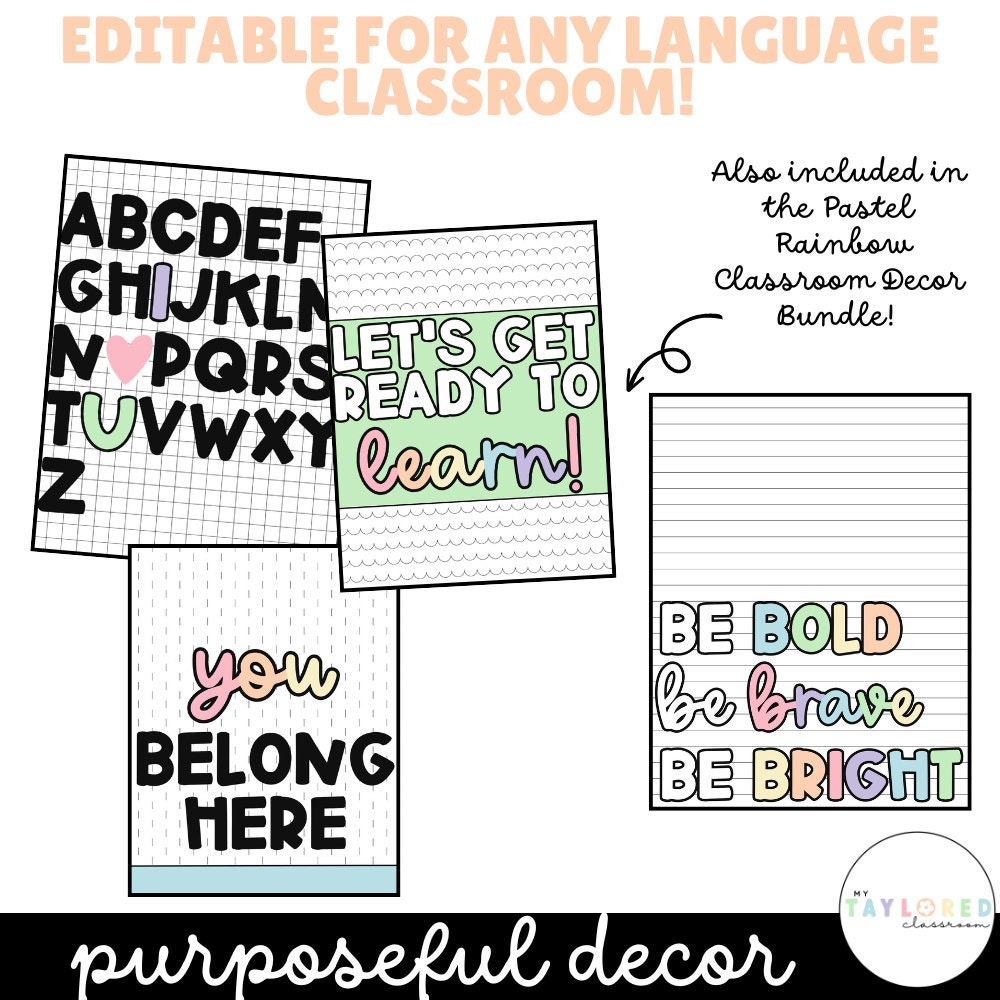 EDITABLE FOR ANY LANGUAGE
CLASSROOM!
ABCDEF
GHIJKLM
N♥PQRS
TUVWXY
Z
LET'S GET
READY TO
learn!
Also included in
the Pastel
Rainbow
Classroom Decor
Bundle!
you
BELONG
HERE
BE BOLD
be brave
BE BRIGHT
MY
TAYLORED
classroom
purposeful decor